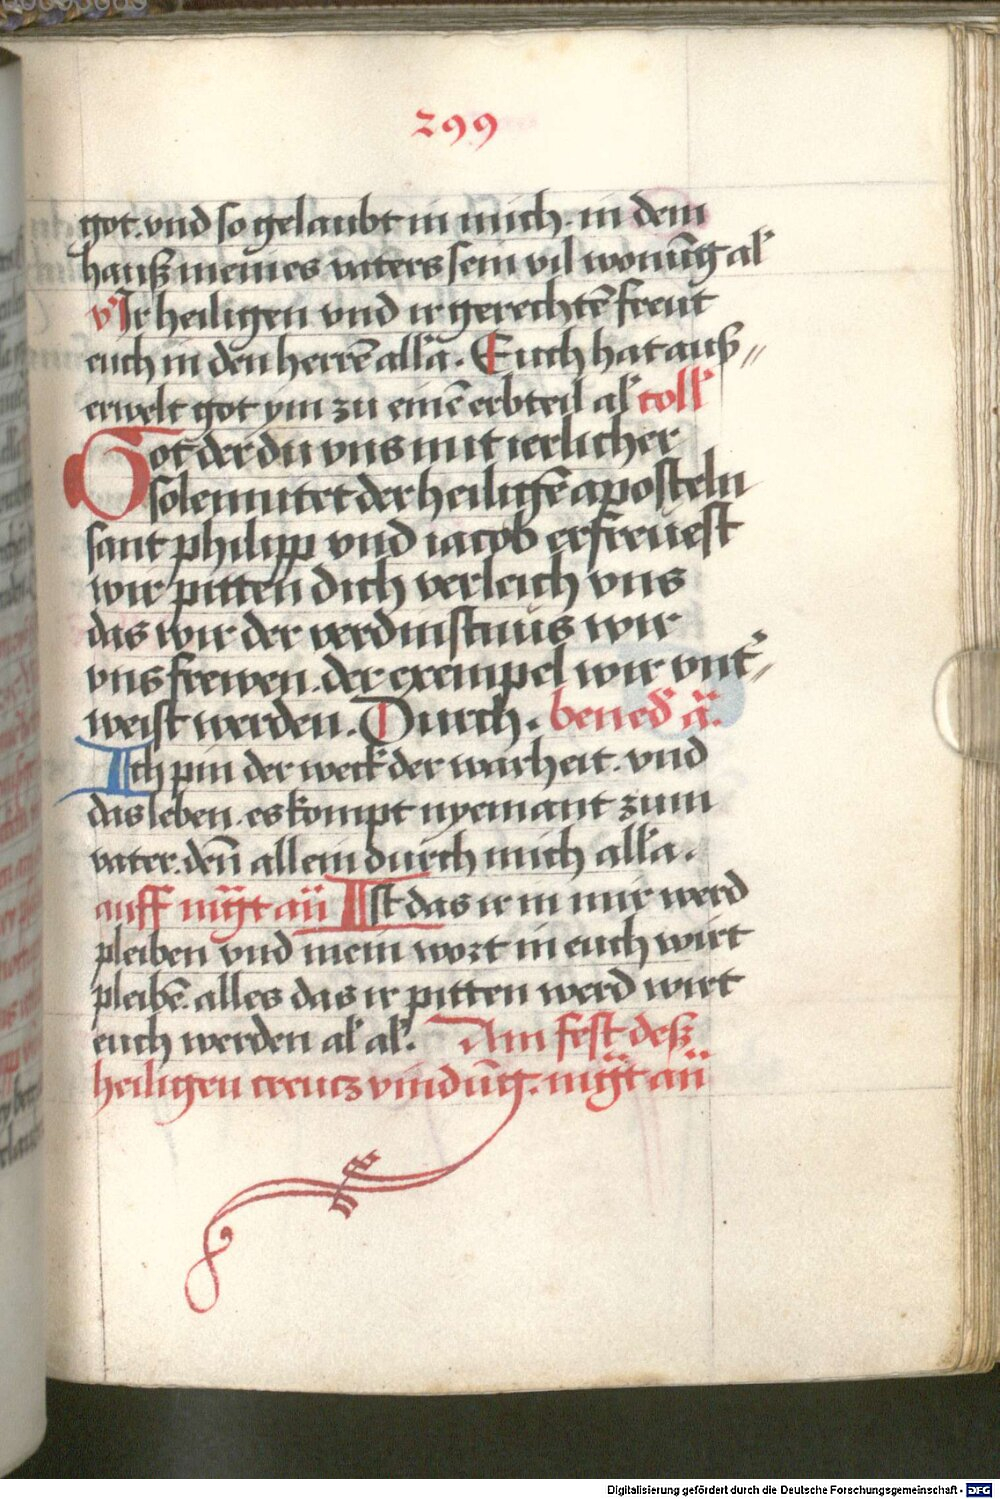 299
got. vnd so gelaubt in mich. in dem
hauß meines vaters sein vil wonūg al'
v' Ir heiligen vnd ir gerechtē freut
euch in den herrē all'a. Euch hat auß⸗
erwelt got ym zu einē erbteil al' coll'
Got der du vns mit ierlicher
solennitet der heiligē aposteln
sant philipp vnd iacob erfreuest
wir pitten dich verleich vns
das wir der verdinstnuͤs wir
vns frewen. der exempel wir vnt'⸗
weist werden. Durch. bened' a̅.
Ich pin der weck der warheit. vnd
das leben. es kompt nyemant zum
vater. den̄ allein durch mich all'a.
auff mgt an̄ Ist das ir in mir werd
pleiben vnd mein wort in euch wirt
pleibē. alles das ir pitten werd wirt
euch werden al' al'. Am fest deß
heiligen creucz vindūg. mgt an̄
Digitalisierung gefördert durch die Deutsche Forschungsgemeinschaft - DFG